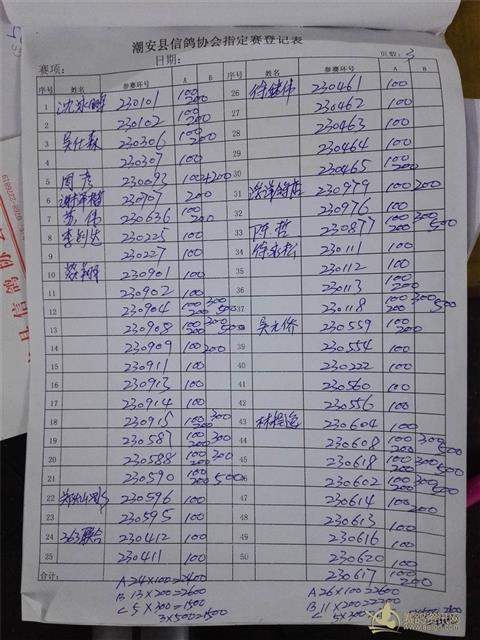 潮安县信鸽协会指定赛登记表
赛项: 日期: 页数: 3
序号 姓名 参赛环号 A B 序号 姓名 参赛环号 A B
1 230101 100 200 26 徐继伟 230461 100
2 230102 100 200 27 230462 100
3 吴仕森 230306 100 200 28 230463 100
4 230307 100 29 230464 100
5 周彦 230092 100+200 30 230465 100 200
6 230707 200 31 230979 100 200
7 苏伟 230636 100 200 32 230976 100
8 230225 100 33 陈哲 230877 100 300 200 500
9 230227 100 34 徐永松 230111 100
10 230901 100 35 230112 100
11 230902 100 36 230113 100 200
12 230904 100 300 200 500 37 230118 100 300 200 500
13 230908 100 300 200 500 吴元侨 230559 100 200
14 230909 100 200 39 230554 100
15 230911 100 40 230222 100
16 230913 100 41 230560 100
17 230914 100 42 230556 100
18 230915 100 300 200 43 230604 100
19 230587 100 300 200 44 230608 100 300 200 500
20 230588 100 300 200 45 230618 100 300 200 500
21 230590 100 500 200 46 230602 100 300 200 500
22 230596 100 47 230614 100 200
23 230595 100 48 230613 100
24 363联合 230412 100 49 230616 100
25 230411 100 50 230620 100
230617 100 200
合计: A 24×100=2400 A 26×100=2600
B 13×200=2600 B 11×200=2200
C 5×300=1500 C 5×300=1500
3×500=1500